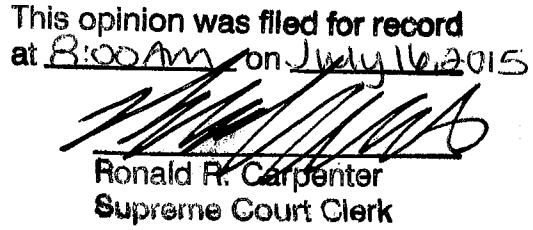 This opinion was filed for record
at 8:00 AM on July 16, 2015
Ronald R. Carpenter
Supreme Court Clerk